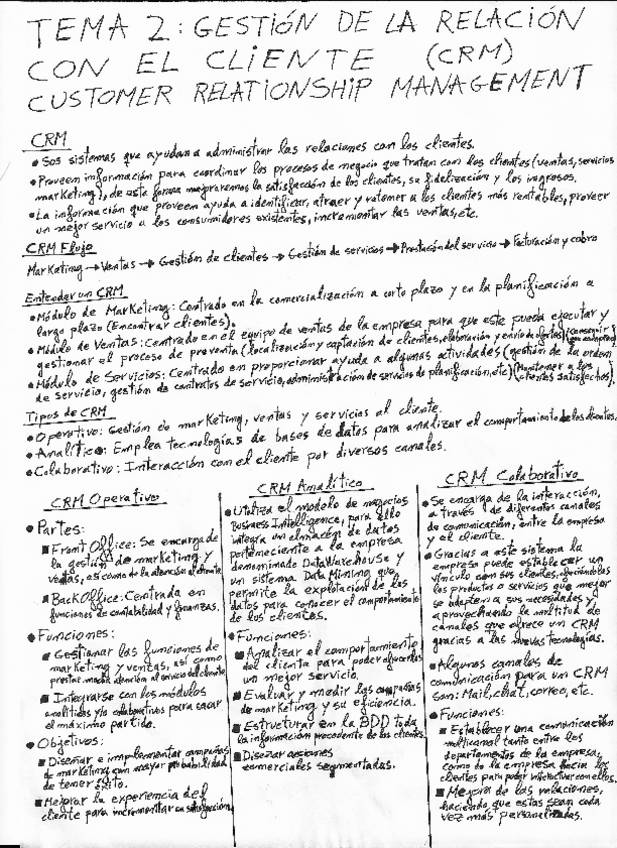 TEMA 2: GESTIÓN DE LA RELACIÓN
CON EL CLIENTE (CRM)
CUSTOMER RELATIONSHIP MANAGEMENT
CRM
• Sos sistemas que ayudan a administrar las relaciones con los clientes.
• Proveen información para coordinar los procesos de negocio que tratan con los clientes (ventas, servicios
marketing), de esta forma mejoraremos la satisfacción de los clientes, su fidelización y los ingresos.
• La información que proveen ayuda a identificar, atraer y retomer a los clientes más rentables, proveer
un mejor servicio a los consumidores existentes, incrementar las ventas, etc.
CRM Flujo
Marketing → Ventas → Gestión de clientes → Gestión de servicios → Prestación del servicio → Facturación y cobro
Entender un CRM
• Módulo de Marketing: Centrado en la comercialización a corto plazo y en la planificación a
largo plazo (Encontrar clientes).
• Módulo de Ventas: Centrado en el equipo de ventas de la empresa para que este pueda ejecutar y
gestionar el proceso de preventa (localización y captación de clientes, elaboración y envío de ofertas) (conseguir
• Módulo de Servicios: Centrado en proporcionar ayuda a algunas actividades (gestión de la orden
de servicio, gestión de contratos de servicio, administración de servicios de planificación, etc) (Mantener a los
clientes satisfechos).
Tipos de CRM
• Operativo: Gestión de marketing, ventas y servicios al cliente.
• Analítico: Emplea tecnologías de bases de datos para analizar el comportamiento de los clientes.
• Colaborativo: Interacción con el cliente por diversos canales.
CRM Operativo
• Partes:
▪ Front Office: Se encarga de
la gestión de marketing y
ventas, así como de la atención al cliente
▪ BackOffice: Centrada en
funciones de contabilidad y finanzas.
• Funciones:
▪ Gestionar las funciones de
marketing y ventas, así como
prestar mayor atención al servicio del cliente
▪ Integrarse con los módulos
analíticos y/o colaborativos para sacar
el máximo partido.
• Objetivos:
▪ Diseñar e implementar campañas
de marketing con mayor probabilidad
de tener éxito.
▪ Mejorar la experiencia del
cliente para incrementar su satisfacción
CRM Analítico
• Utiliza el modelo de negocios
Business Intelligence, para ello
integra un almacén de datos
perteneciente a la empresa
denominado DataWarehouse y
un sistema Data Mining que
permite la explotación de los
datos para conocer el comportamiento
de los clientes.
• Funciones:
▪ Analizar el comportamiento
del cliente para poder ofrecerles
un mejor servicio.
▪ Evaluar y medir las campañas
de marketing y su eficiencia.
▪ Estructurar en la BDD toda
la información procedente de los clientes.
▪ Diseñar acciones
comerciales segmentadas.
CRM Colaborativo
• Se encarga de la interacción,
a través de diferentes canales
de comunicación, entre la empresa
y el cliente.
• Gracias a este sistema la
empresa puede establecer un
vínculo con sus clientes, ofreciéndoles
los productos o servicios que mejor
se adapten a sus necesidades y
aprovechando la multitud de
canales que ofrece un CRM
gracias a las nuevas tecnologías.
• Algunos canales de
comunicación para un CRM
son: Mail, chat, correo, etc.
• Funciones:
▪ Establecer una comunicación
multicanal tanto entre los
departamentos de la empresa,
como de la empresa hacia los
clientes para poder interactuar con ellos.
▪ Mejora de las relaciones,
haciendo que estas sean cada
vez más personalizadas.